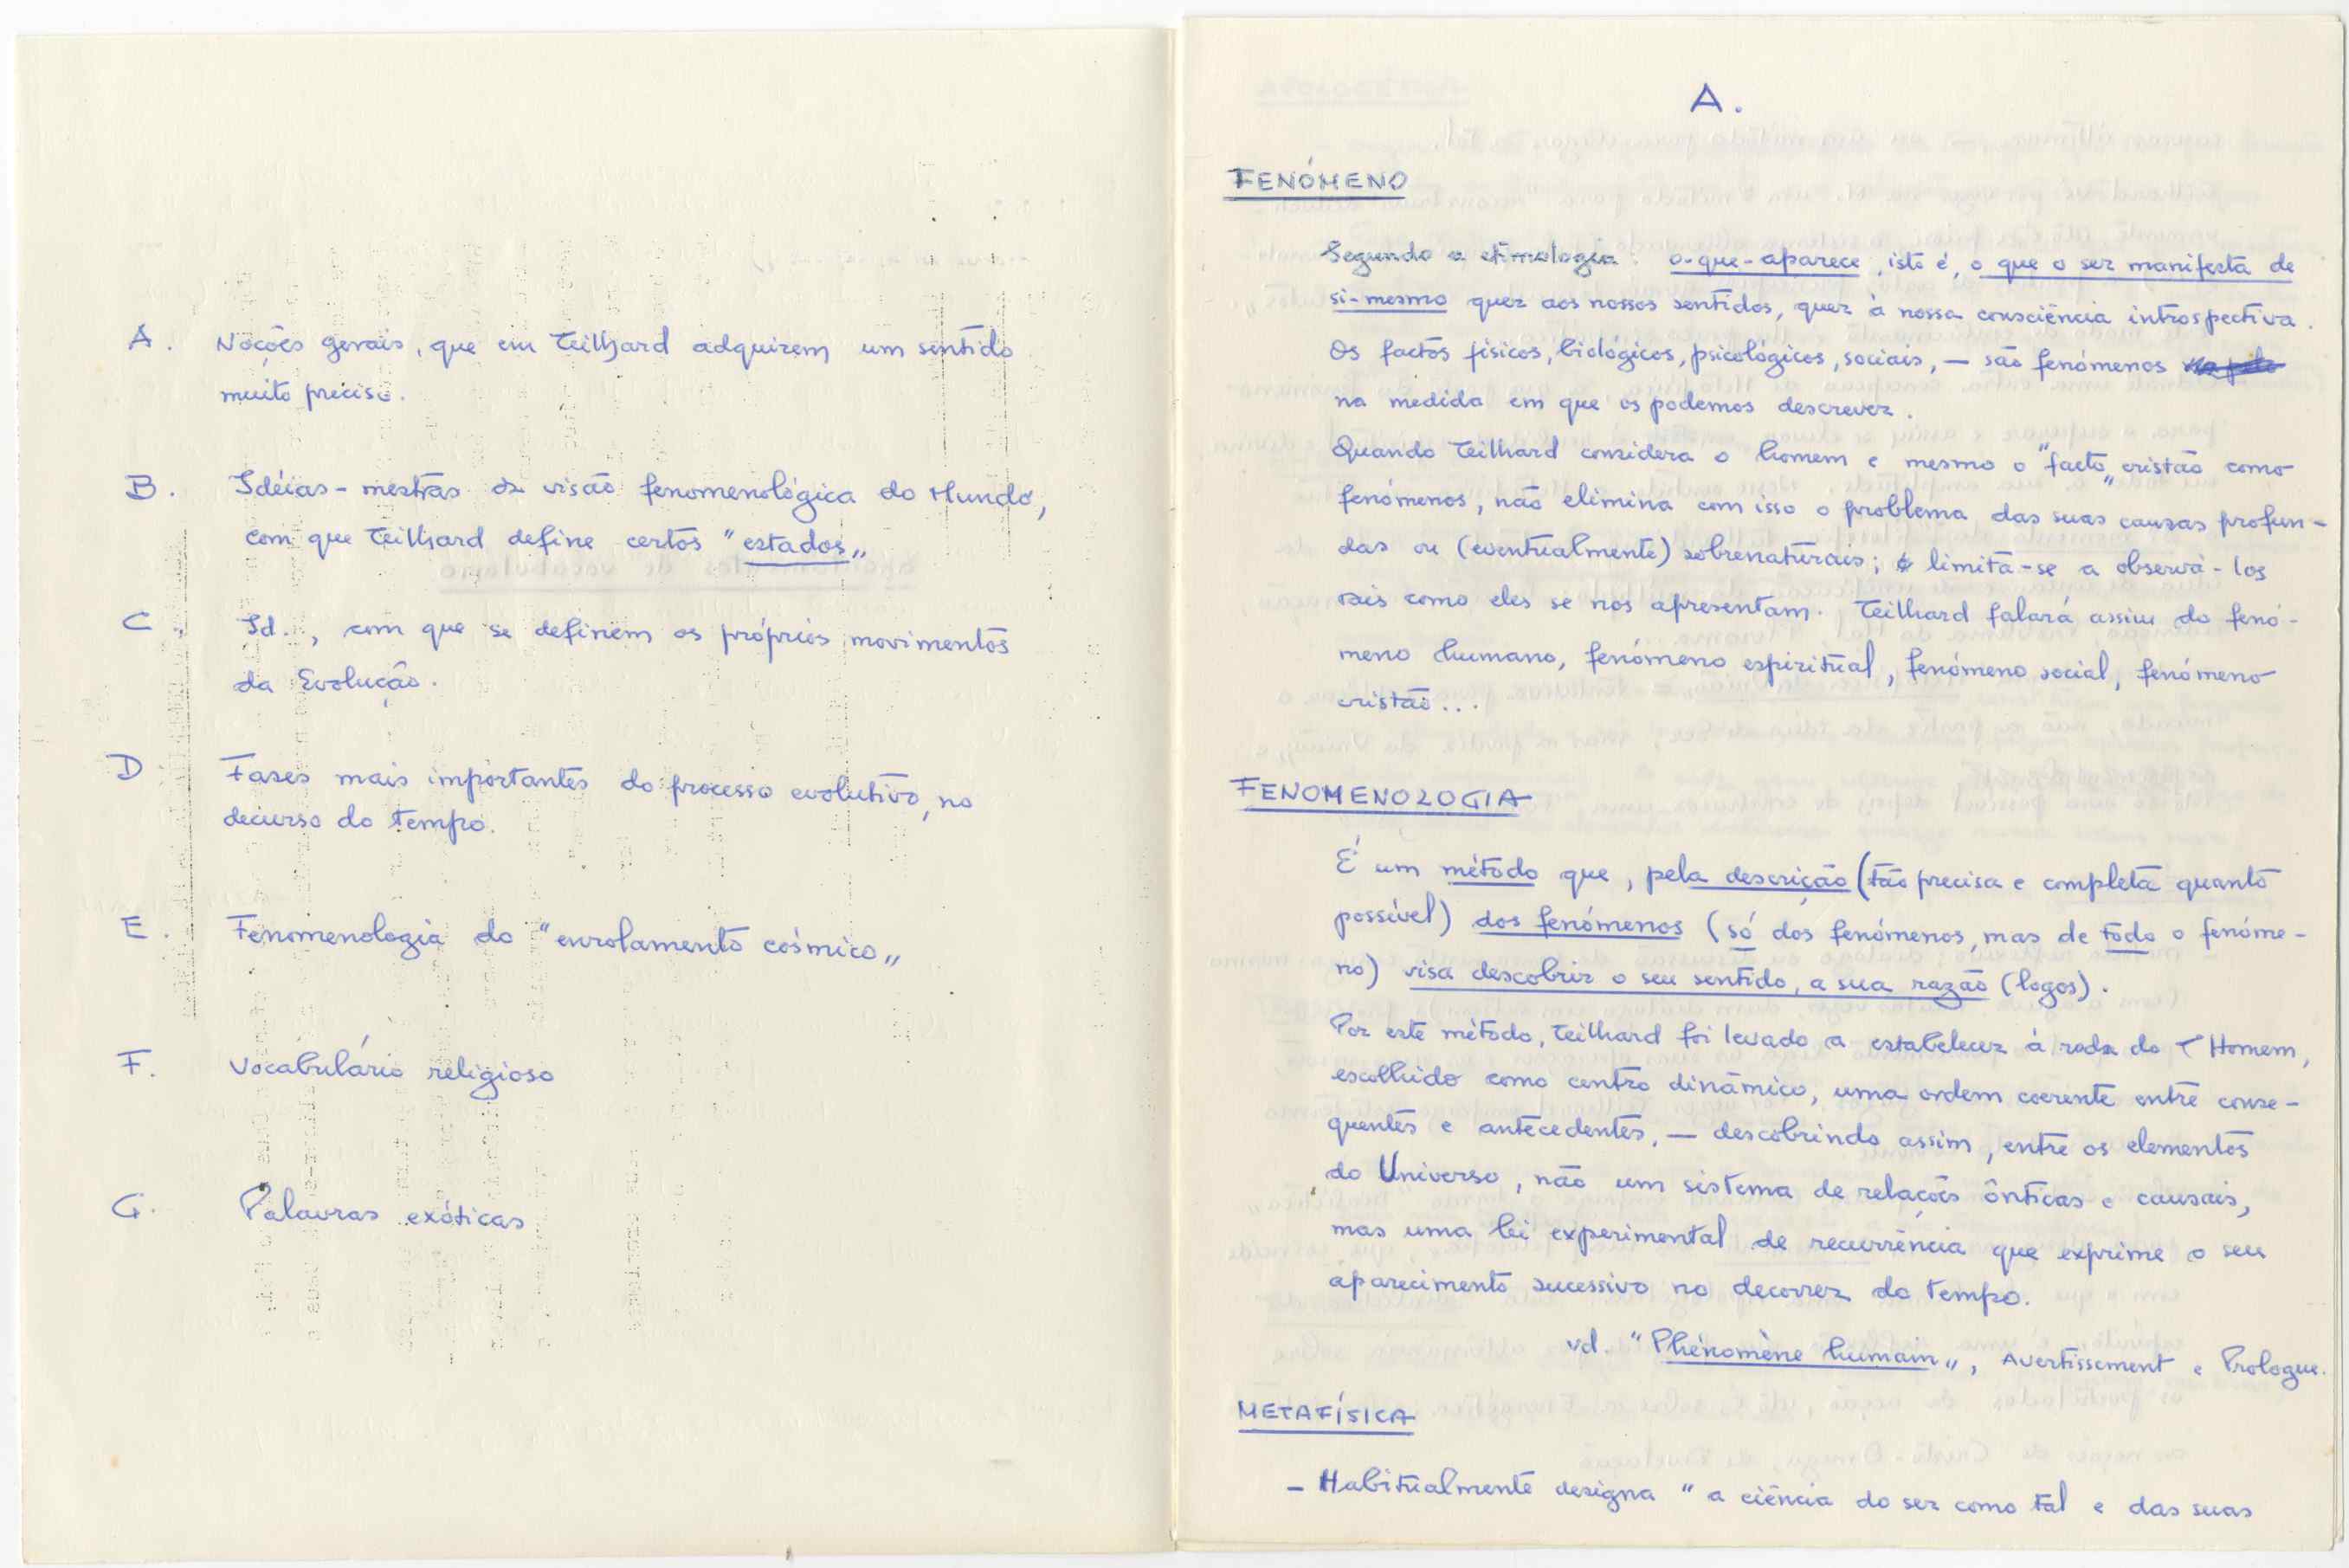 A. Noções gerais, que em Teilhard adquirem um sentido
muito preciso.
B. Idéias-mestras da visão fenomenológica do Mundo,
com que Teilhard define certos "estados"
C. Id., com que se definem os próprios movimentos
da Evolução.
D Fases mais importantes do processo evolutivo, no
decurso do tempo.
E. Fenomenologia do "enrolamento cósmico"
F. Vocabulário religioso
G. Palavras exóticas
A.
FENÓMENO
Segundo a etimologia: o-que-aparece, isto é, o que o ser manifesta de
si-mesmo quer aos nossos sentidos, quer à nossa consciência introspectiva.
Os factos físicos, biológicos, psicológicos, sociais, — são fenómenos
na medida em que os podemos descrever.
Quando Teilhard considera o homem e mesmo o "facto" cristão como
fenómenos, não elimina com isso o problema das suas causas profun-
das ou (eventualmente) sobrenaturais; limita-se a observá-los
tais como eles se nos apresentam. Teilhard falará assim do fenó-
meno humano, fenómeno espiritual, fenómeno social, fenómeno
cristão...
FENOMENOLOGIA
É um método que, pela descrição (tão precisa e completa quanto
possível) dos fenómenos (só dos fenómenos, mas de todo o fenóme-
no) visa descobrir o seu sentido, a sua razão (logos).
Por este método, Teilhard foi levado a estabelecer à roda do Homem,
escolhido como centro dinâmico, uma ordem coerente entre conse-
quentes e antecedentes, — descobrindo assim, entre os elementos
do Universo, não um sistema de relações ônticas e causais,
mas uma lei experimental de recurrência que exprime o seu
aparecimento sucessivo no decorrer do tempo.
vd. "Phénomène humain", Avertissement e Prologue.
METAFÍSICA
- Habitualmente designa "a ciência do ser como tal e das suas